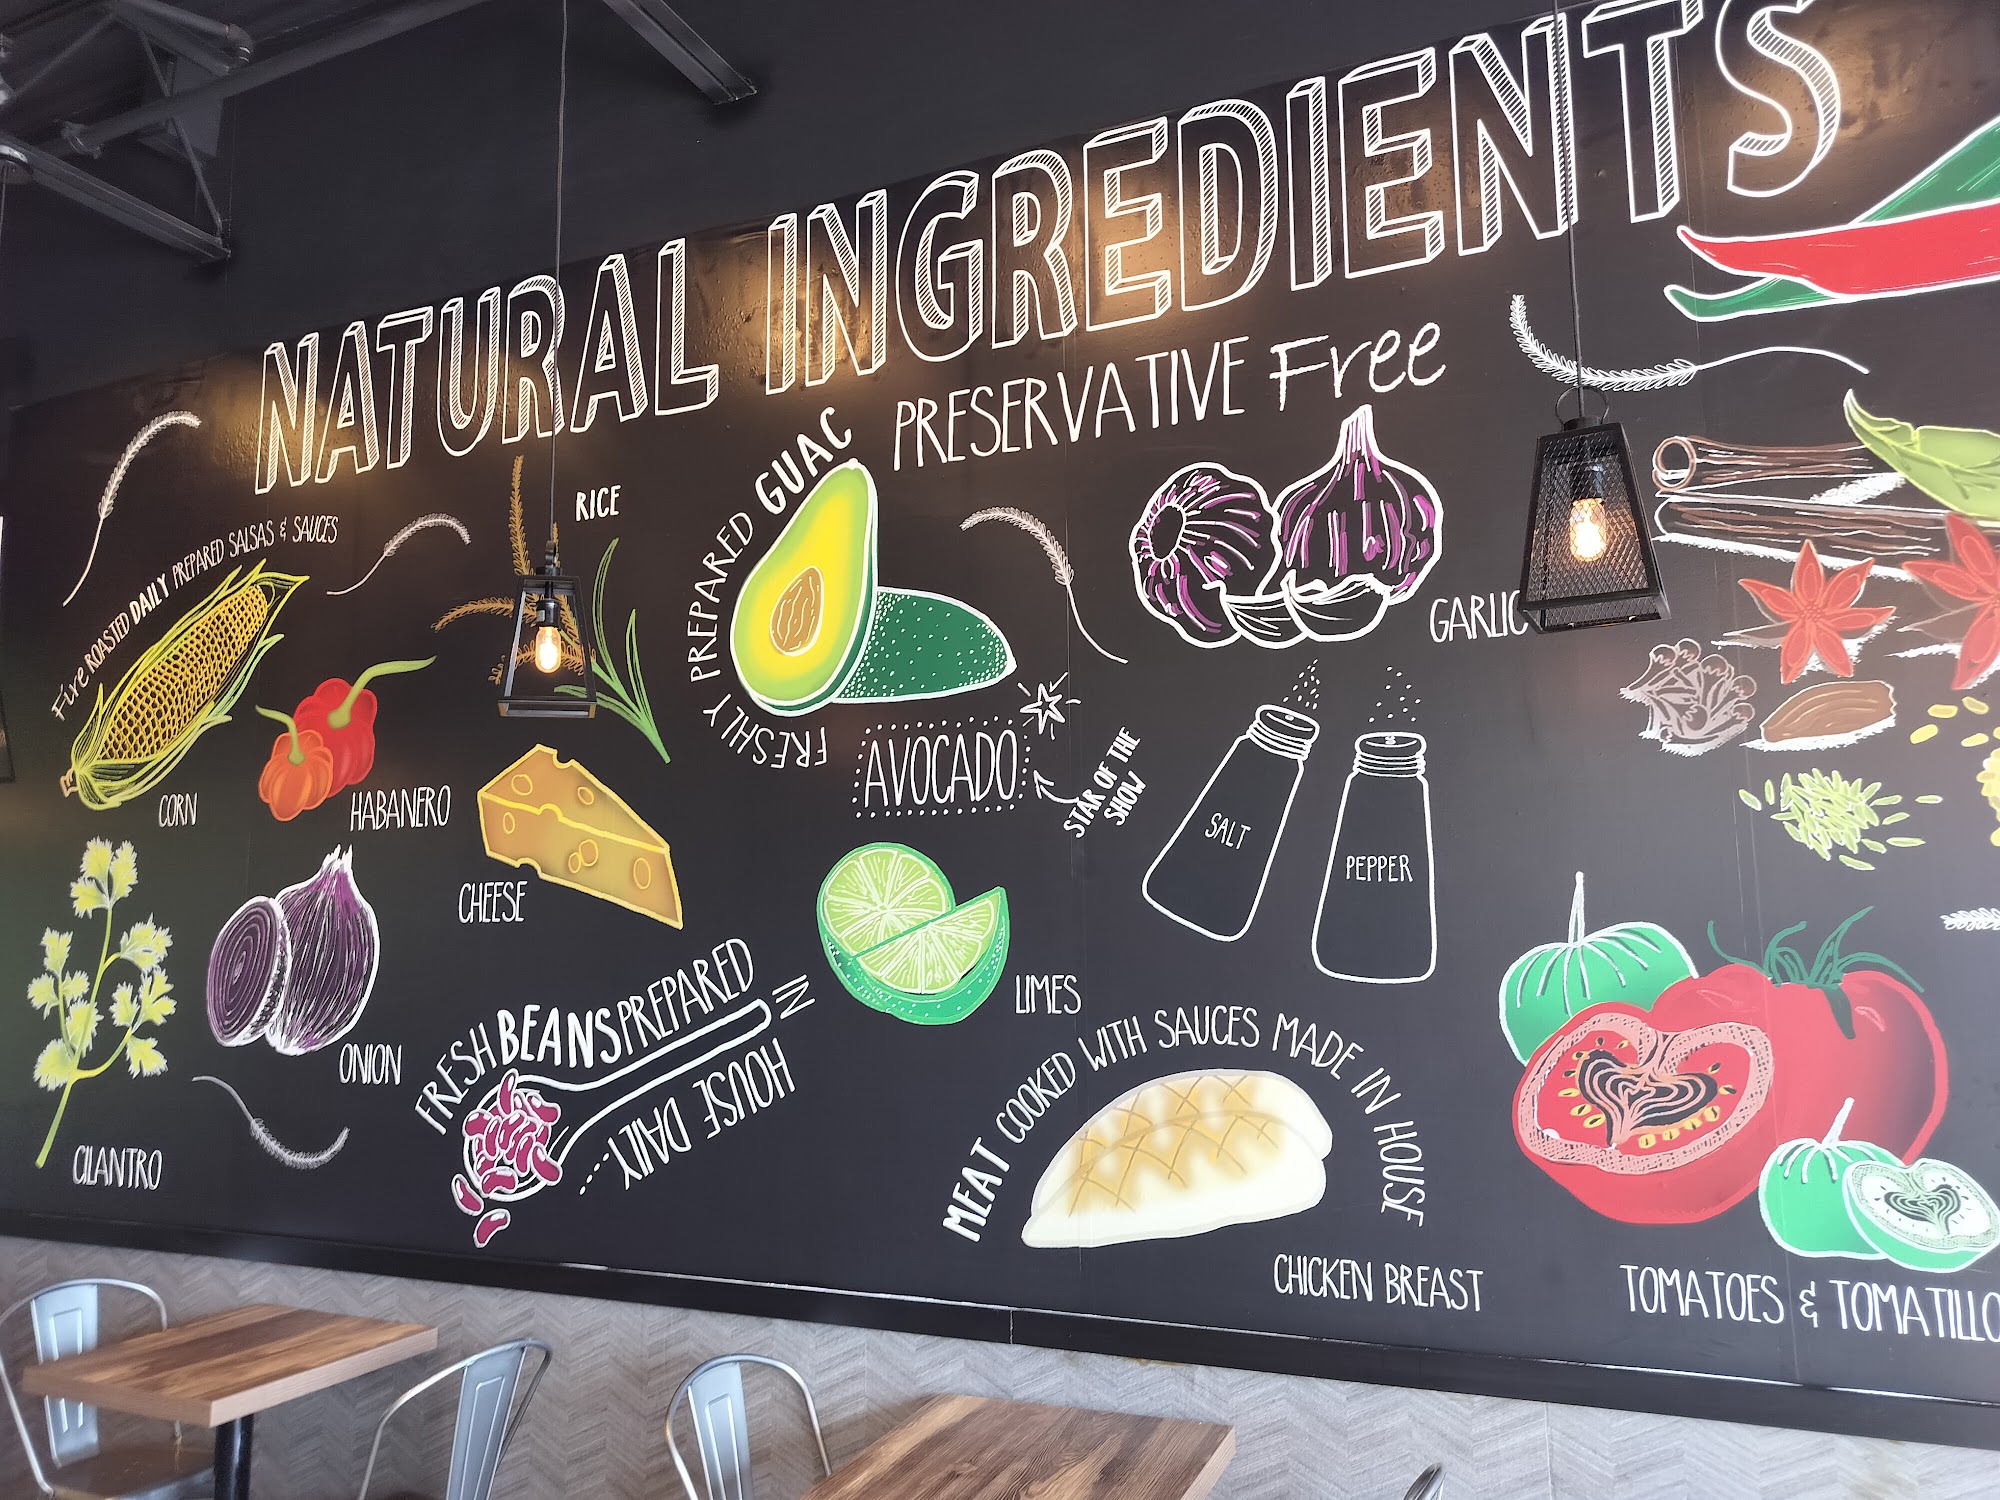 NATURAL INGREDIENTS
PRESERVATIVE Free
Fire ROASTED DAILY PREPARED SALSAS & SAUCES
RICE
FRESHLY PREPARED GUAC
FRESHLY
GARLIC
AVOCADO
STAR OF THE
SHOW
CORN
HABANERO
SALT
PEPPER
CHEESE
LIMES
ONION
FRESH BEANS PREPARED
IN
HOUSE DAILY
MEAT COOKED WITH SAUCES MADE IN HOUSE
CILANTRO
CHICKEN BREAST
TOMATOES & TOMATILLO